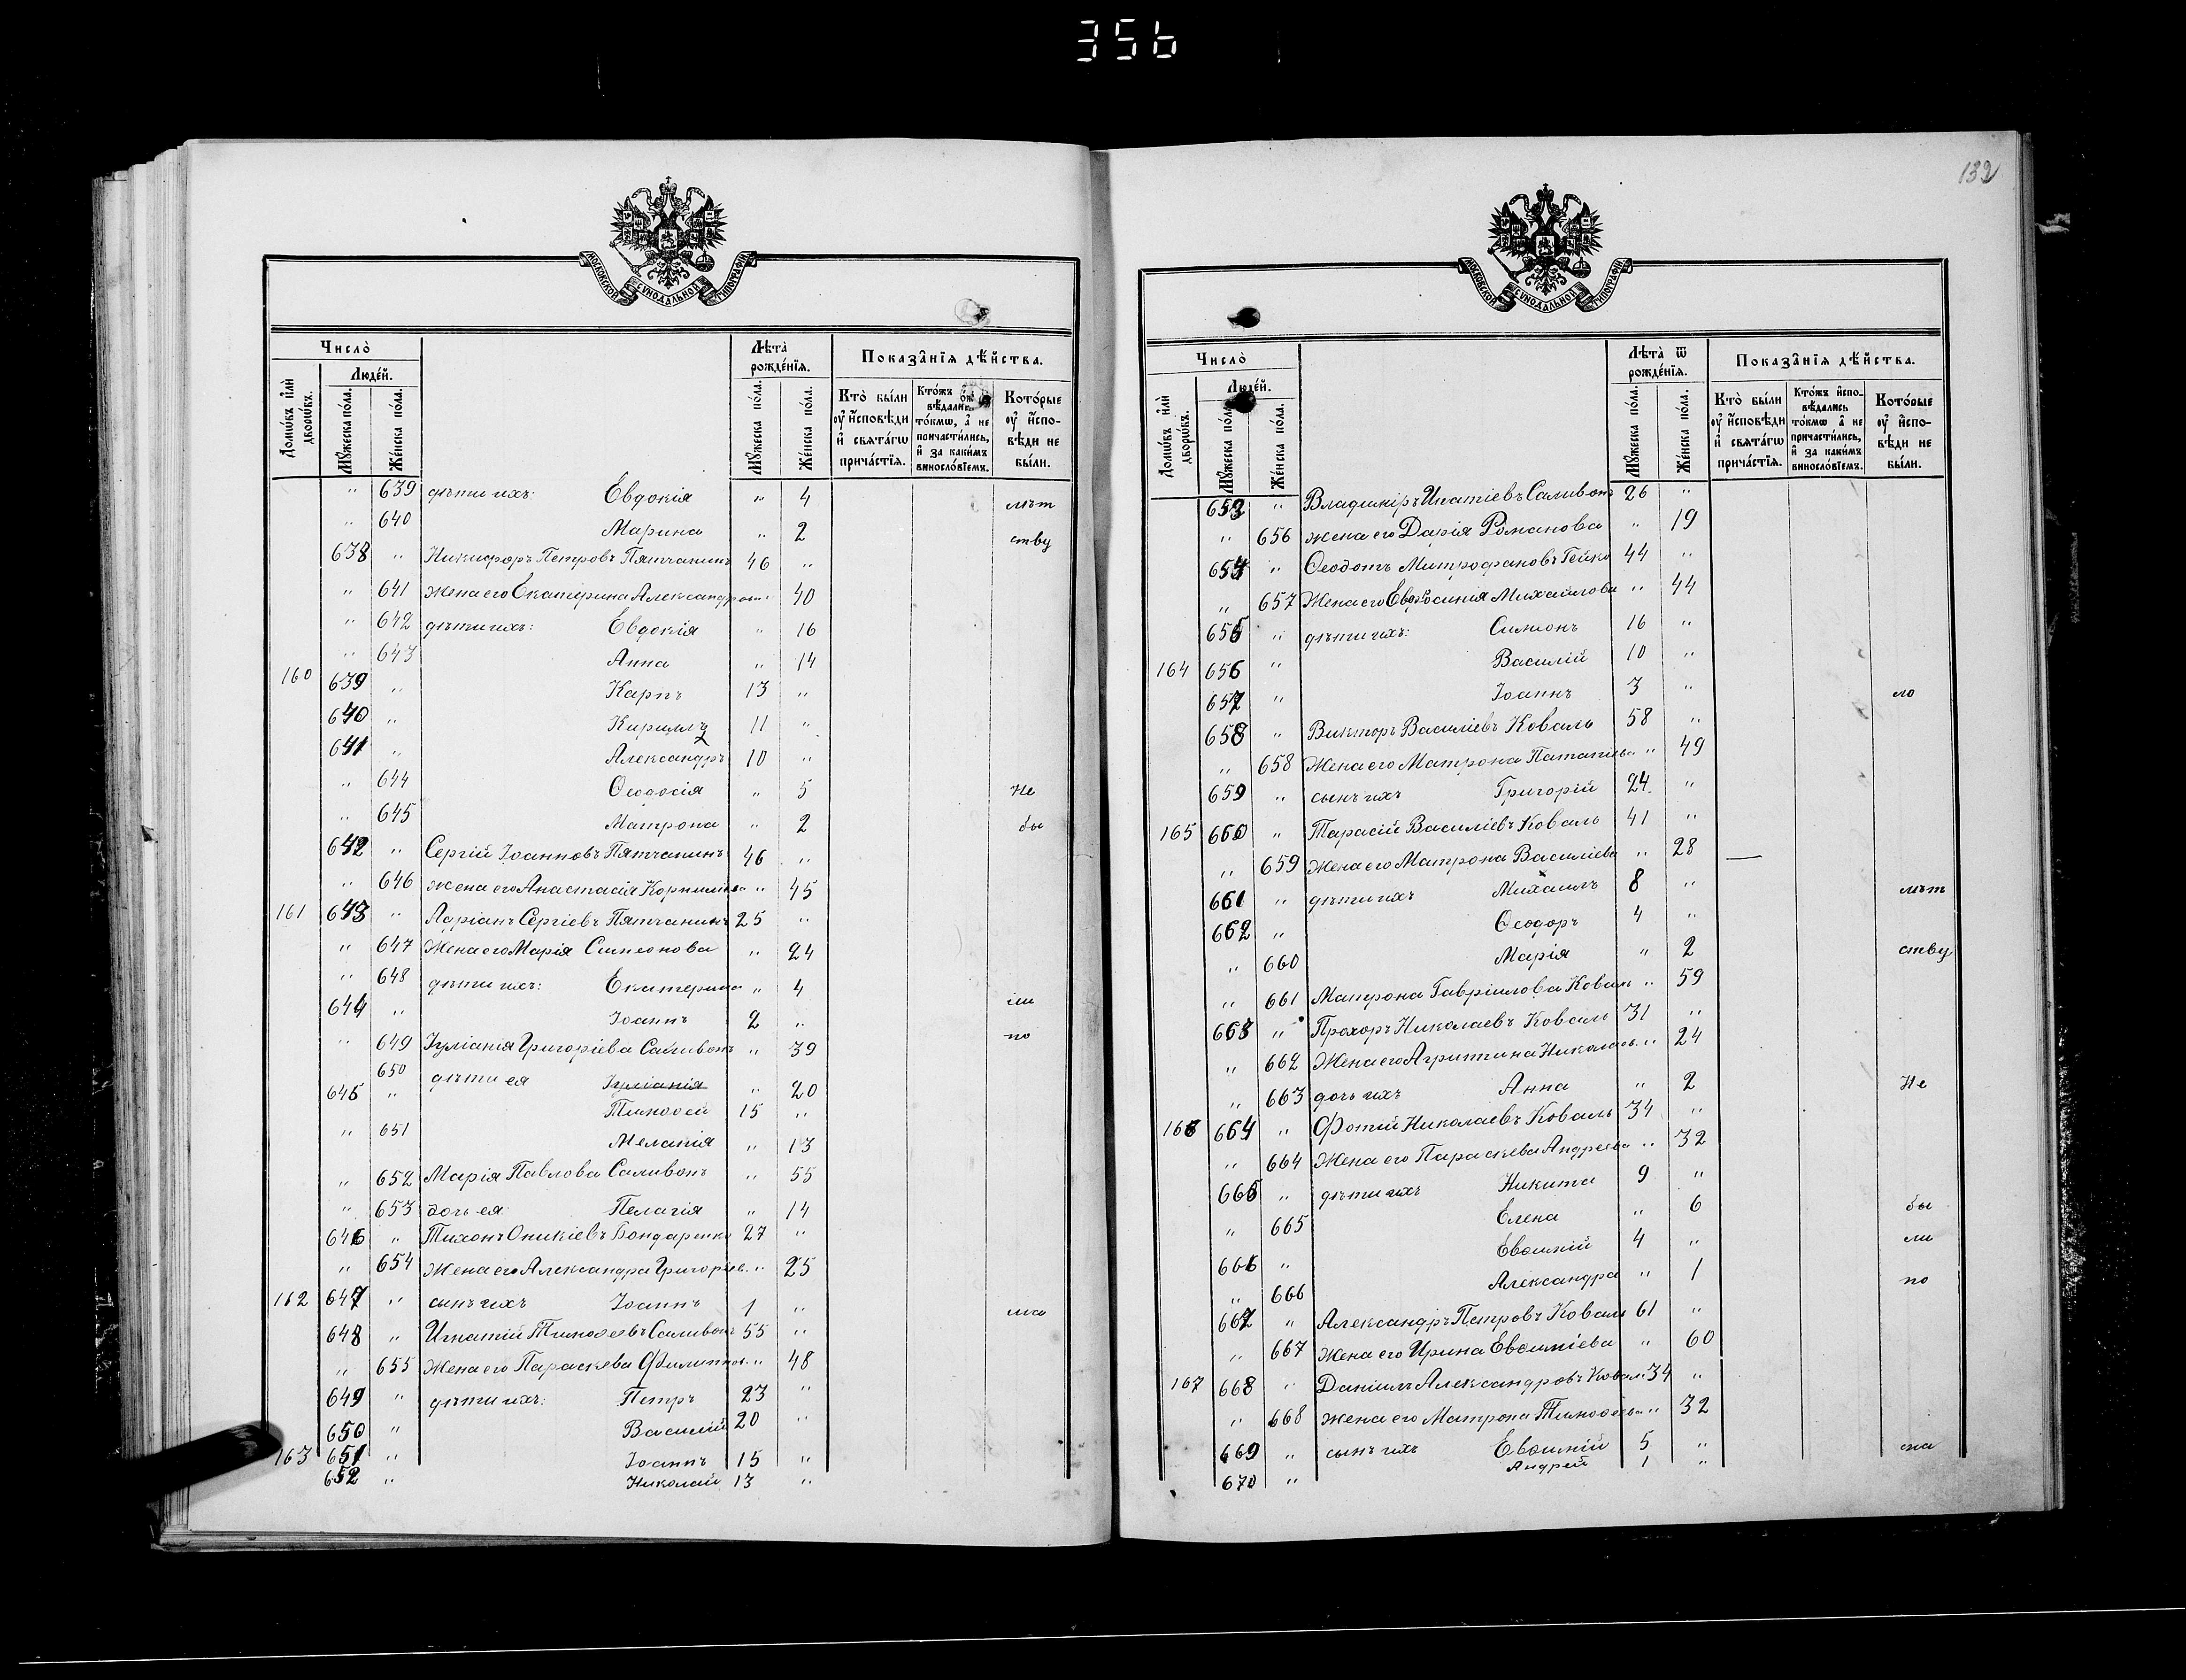 356
МОСКОВСКОЙ СУНОДАЛЬНОЙ ТИПОГРАФІИ
Число̀
Лѣта̀ рожде́нїѧ.
Показа̑нїѧ дѣ́йства.
Домѡ́въ и҆лѝ дворѡ́въ.
Люде́й.
Мꙋ́жеска по́ла.
Же́нска по́ла.
Мꙋ́жеска по́ла.
Же́нска по́ла.
Кто̀ бы́ли ᲂу҆ и҆́сповѣди и҆ свѧта́гѡ прича́стїѧ.
Которые ᲂу҆ и҆́сповѣди не бы́ли.
" 639 дѣти ихъ: Евдокія " 4 лѣт
" 640 Марина " 2 ству
638 " Никифоръ Петровъ Пятчанинъ 46 "
" 641 жена его Екатерина Александров. " 40
" 642 дѣти ихъ: Евдокія " 16
" 643 Анна " 14
160 639 " Карпъ 13 "
640 " Кириллъ 11 "
641 " Александръ 10 "
" 644 Ѳеодосія " 5 Не
" 645 Матрона " 2 бы
642 " Сергій Іоанновъ Пятчанинъ 46 "
" 646 жена его Анастасія Корниліева " 45
161 643 " Адріанъ Сергіевъ Пятчанинъ 25 "
" 647 Жена его Марія Симеонова " 24
" 648 дѣти ихъ: Екатерина " 4
644 " Іоаннъ 2 " ли
" 649 Іуліанія Григоріева Саливонъ " 39 по
650 дѣти ея Іуліанія " 20
645 " Тимоѳей 15 "
" 651 Меланія " 13
" 652 Марія Павлова Саливонъ " 55
" 653 дочь ея Пелагія " 14
646 " Тихонъ Оникіевъ Бондаренко 27 "
" 654 Жена его Александра Григоріев. " 25
162 647 " сынъ ихъ Іоаннъ 1 " ма
648 " Игнатій Тимоѳеевъ Саливонъ 55 "
" 655 Жена его Параскева Филиппов. " 48
649 " дѣти ихъ: Петръ 23 "
650 " Василій 20 "
163 651 " Іоаннъ 15 "
652 " Николай 13 "
132
МОСКОВСКОЙ СУНОДАЛЬНОЙ ТИПОГРАФІИ
Число̀
Лѣта̀ ѿ рожде́нїѧ.
Показа̑нїѧ дѣ́йства.
Домѡ́въ и҆лѝ дворѡ́въ.
Люде́й.
Мꙋ́жеска пола
Же́нска по́ла.
Мꙋ́жеска по́ла.
Же́нска по́ла.
Кто̀ бы́ли ᲂу҆ и҆́сповѣди и҆ свѧта́гѡ прича́стїѧ.
Кто́жъ и҆сповѣдались то́кмѡ, а҆ не причасти́лись, и҆ за каки́мъ виносло́вїемъ.
Кото́рые ᲂу҆ и҆́сповѣди не бы́ли.
653 " Владиміръ Игнатіевъ Саливонъ 26 "
" 656 жена его Дарія Романова " 19
654 " Ѳеодотъ Митрофановъ Гейко 44 "
" 657 Жена его Евфросинія Михайлова " 44
655 " дѣти ихъ: Симеонъ 16 "
164 656 " Василій 10 "
657 " Іоаннъ 3 " ло
658 " Викторъ Василіевъ Коваль 58 "
" 658 Жена его Матрона Патапіева " 49
659 " сынъ ихъ Григорій 24 "
165 660 " Тарасій Василіевъ Коваль 41 "
" 659 Жена его Матрона Василіева " 28 —
661 " дѣти ихъ Михаилъ 8 " лѣт
662 " Ѳеодоръ 4 "
" 660 Марія " 2 ству
" 661 Матрона Гавріилова Коваль " 59
663 " Прохоръ Николаевъ Коваль 31 "
" 662 Жена его Агриппина Николаев. " 24
" 663 дочь ихъ Анна " 2 Не
166 664 " Фотій Николаевъ Коваль 34 "
" 664 Жена его Параскева Андреева " 32
665 " дѣти ихъ Никита 9 "
" 665 Елена " 6 бы
666 " Евѳимій 4 " ли
" 666 Александра " 1 по
667 " Александръ Петровъ Коваль 61 "
" 667 Жена его Ирина Евѳиміева " 60
167 668 " Даніилъ Александровъ Ковал. 34 "
" 668 жена его Матрона Тимоѳеева " 32
669 " сынъ ихъ Евѳимій 5 " ма
670 " Андрей 1 "